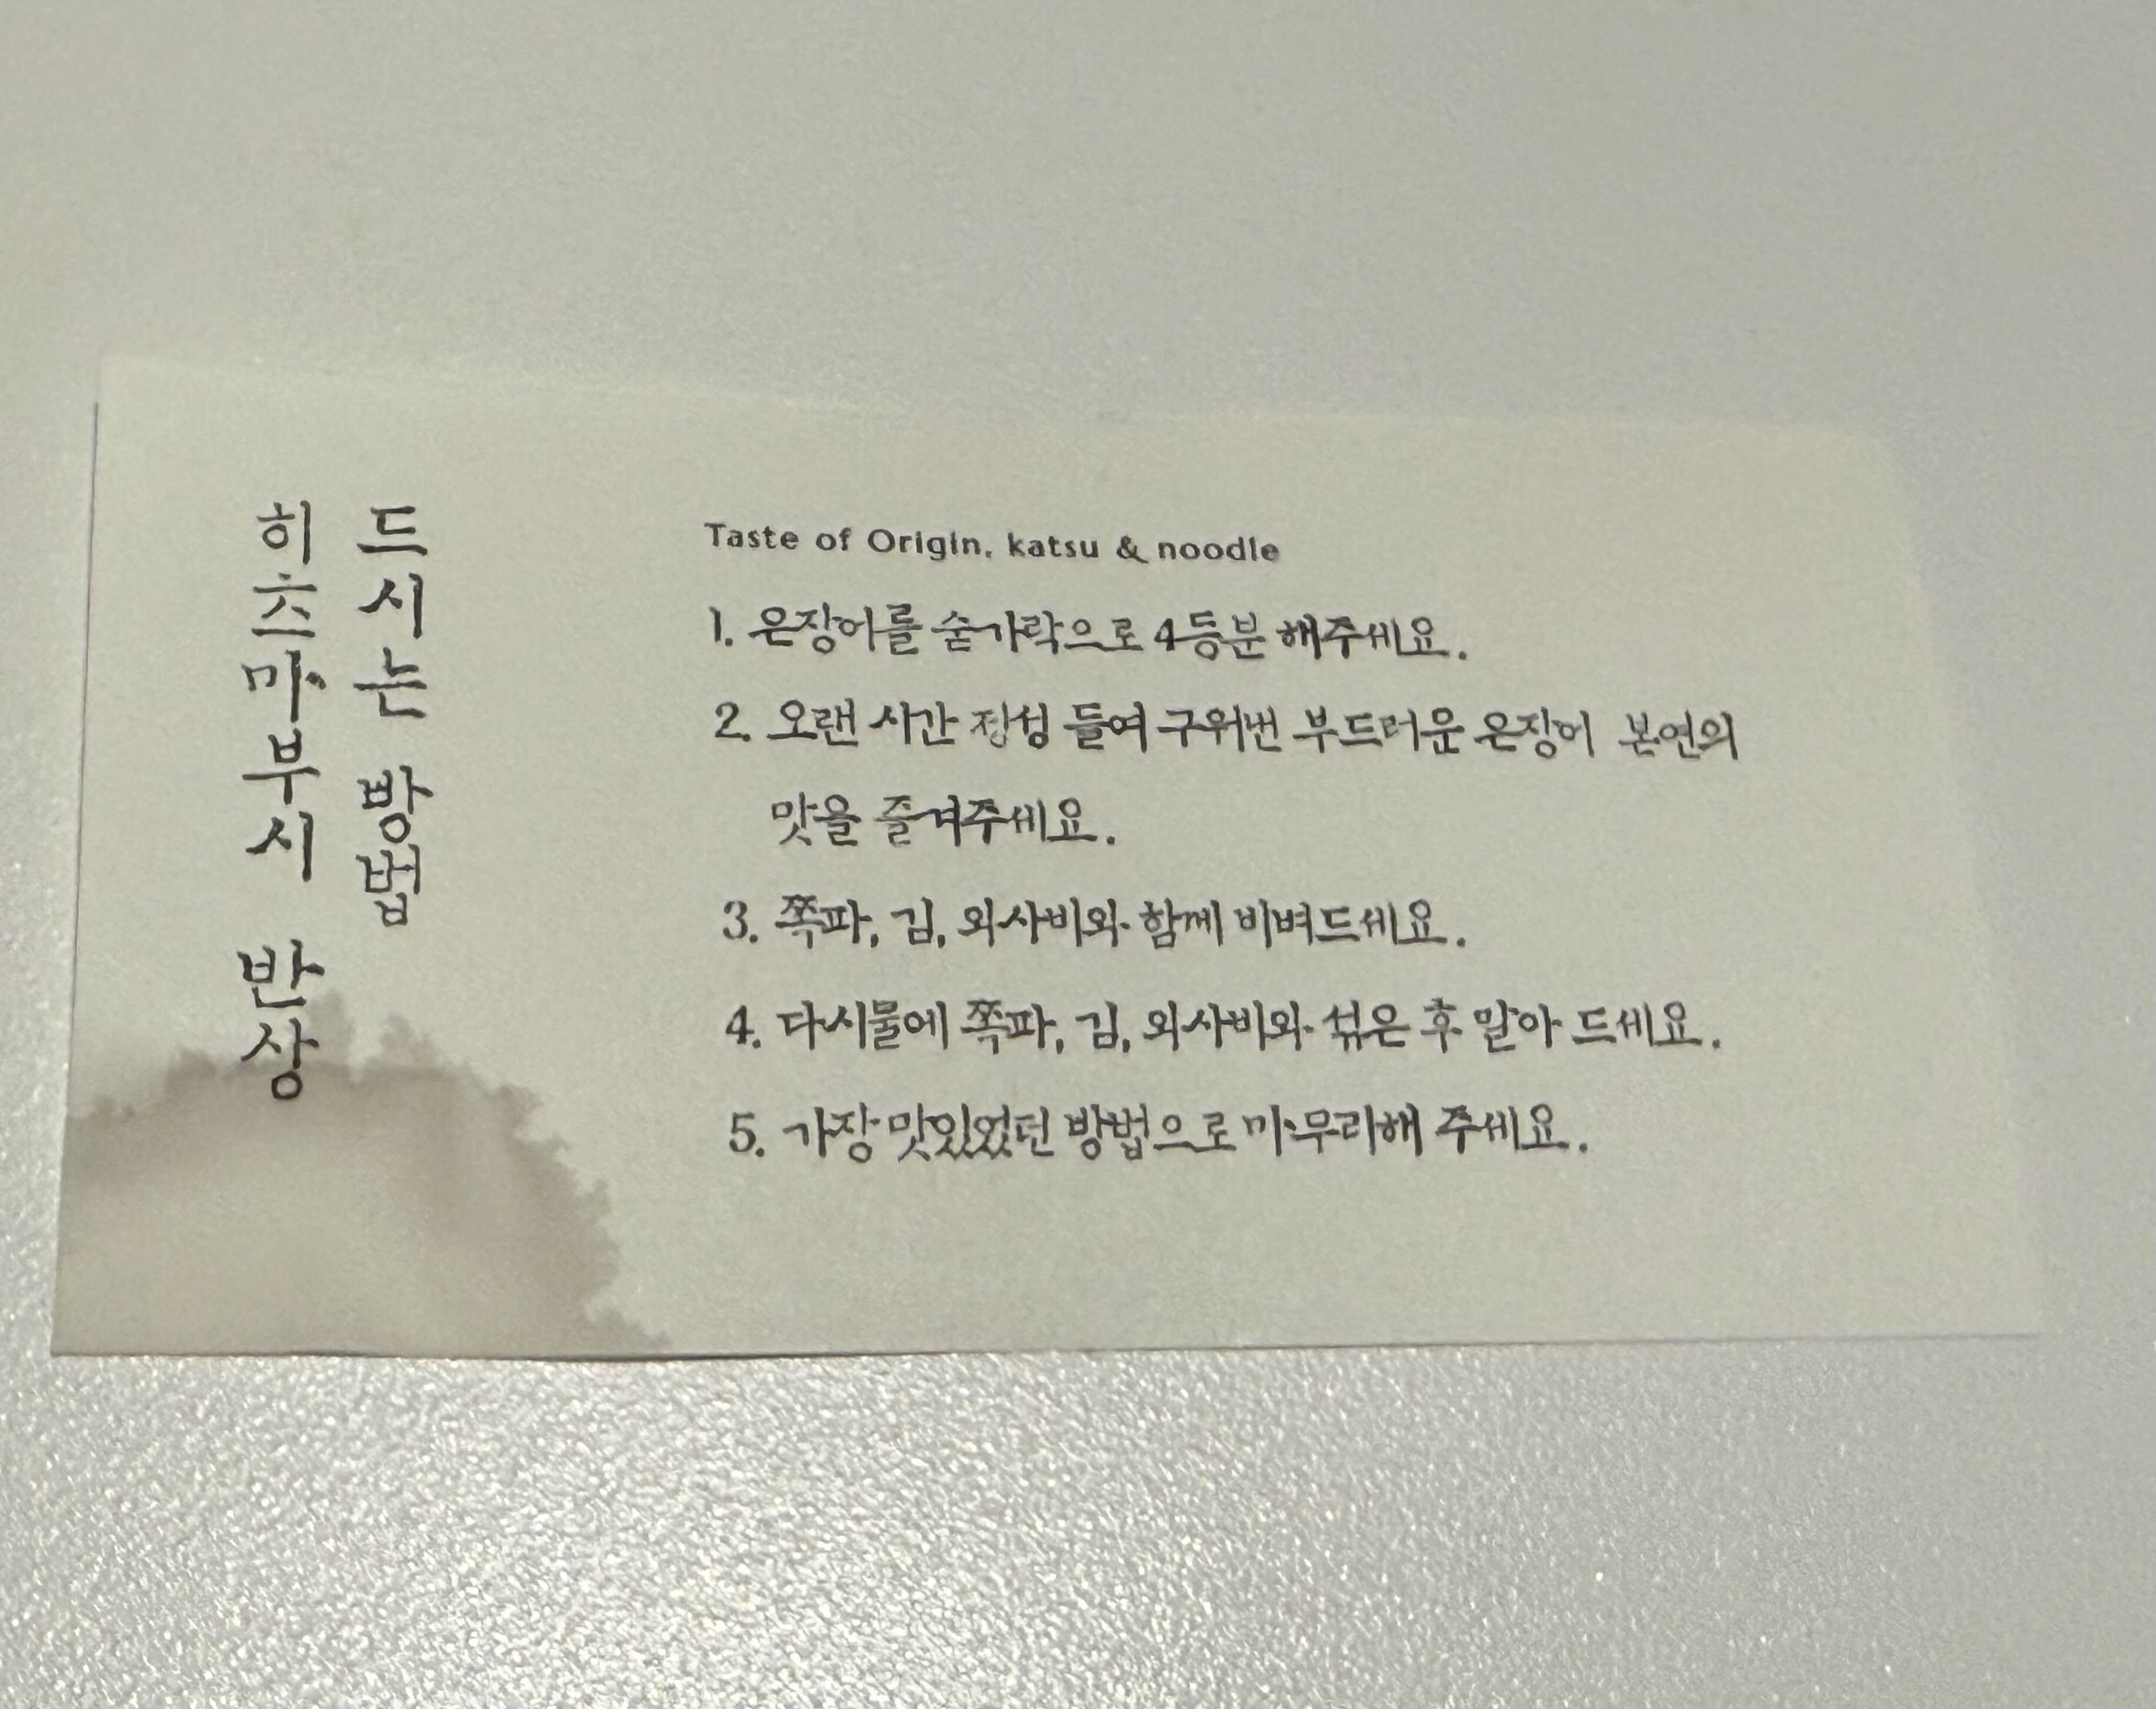 히츠마부시 반상
드시는 방법
Taste of Origin, katsu & noodle
1. 은장어를 숟가락으로 4등분 해주세요.
2. 오랜 시간 정성 들여 구워낸 부드러운 은장어 본연의
맛을 즐겨주세요.
3. 쪽파, 김, 와사비와 함께 비벼드세요.
4. 다시물에 쪽파, 김, 와사비와 섞은 후 말아 드세요.
5. 가장 맛있었던 방법으로 마무리해 주세요.